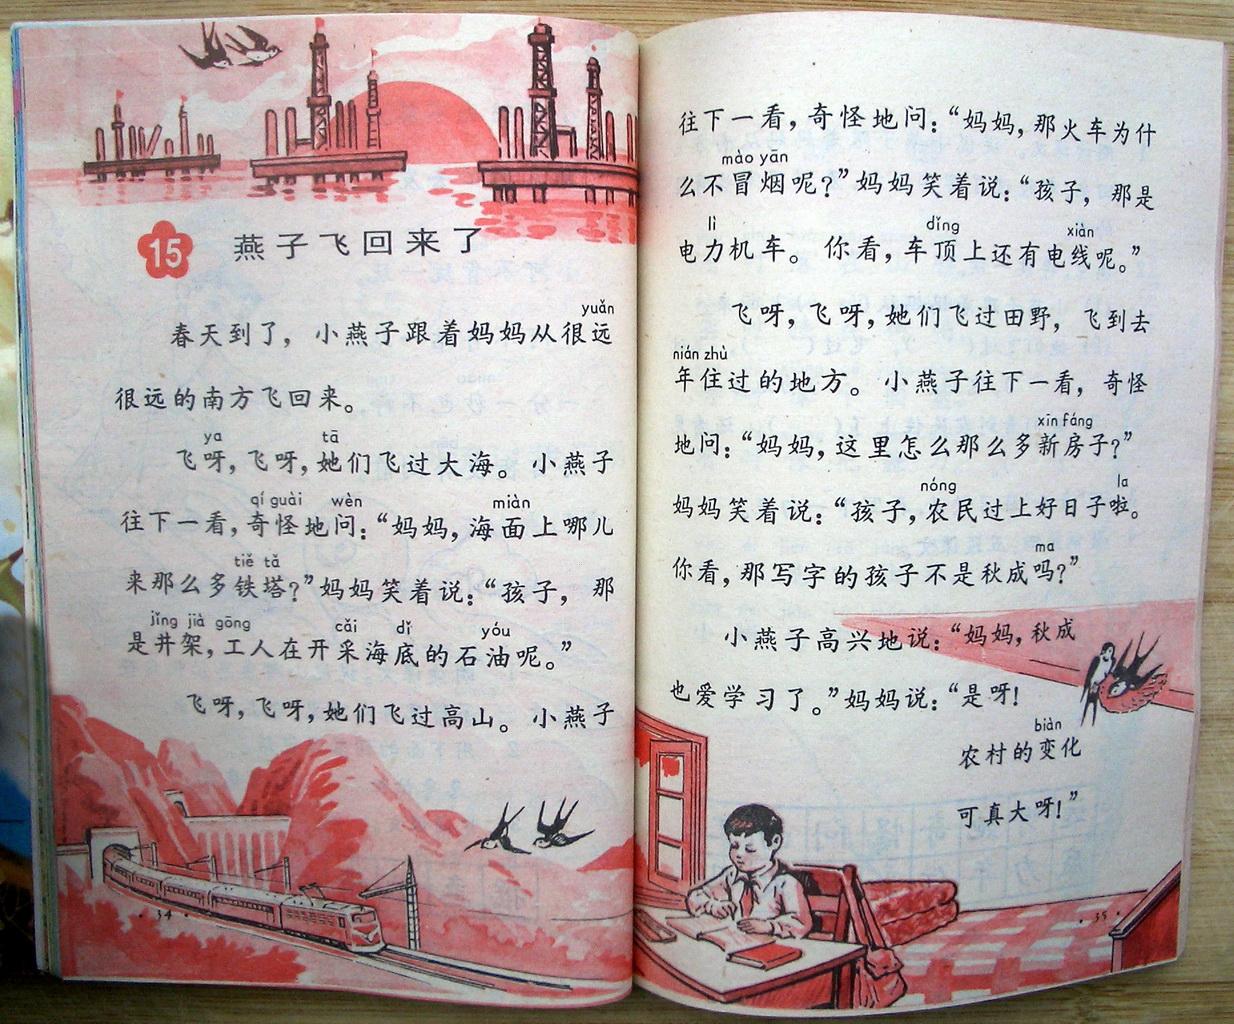 15 燕子飞回来了
yuǎn
春天到了，小燕子跟着妈妈从很远
很远的南方飞回来。
ya tā
飞呀，飞呀，她们飞过大海。小燕子
qí guài wèn miàn
往下一看，奇怪地问：“妈妈，海面上哪儿
tiě tǎ
来那么多铁塔？”妈妈笑着说：“孩子，那
jǐng jià gōng cǎi dǐ yóu
是井架，工人在开采海底的石油呢。”
飞呀，飞呀，她们飞过高山。小燕子
·34·
往下一看，奇怪地问：“妈妈，那火车为什
mào yān
么不冒烟呢？”妈妈笑着说：“孩子，那是
lì dǐng xiàn
电力机车。你看，车顶上还有电线呢。”
飞呀，飞呀，她们飞过田野，飞到去
nián zhù
年住过的地方。小燕子往下一看，奇怪
xīn fáng
地问：“妈妈，这里怎么那么多新房子？”
nóng la
妈妈笑着说：“孩子，农民过上好日子啦。
ma
你看，那写字的孩子不是秋成吗？”
小燕子高兴地说：“妈妈，秋成
也爱学习了。”妈妈说：“是呀！
biàn
农村的变化
可真大呀！”
·35·